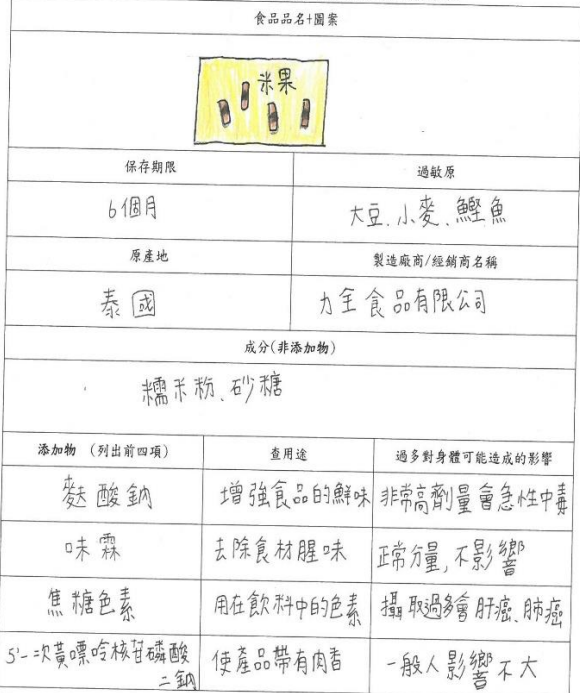 食品品名+圖案
米果
保存期限
過敏原
6個月
大豆、小麥、鰹魚
原產地
製造廠商/經銷商名稱
泰國
力全食品有限公司
成分(非添加物)
糯米粉、砂糖
添加物 (列出前四項)
查用途
過多對身體可能造成的影響
麩酸鈉
增強食品的鮮味
非常高劑量會急性中毒
味霖
去除食材腥味
正常分量,不影響
焦糖色素
用在飲料中的色素
攝取過多會肝癌、肺癌
5'-次黃嘌呤核苷磷酸
二鈉
使產品帶有肉香
一般人影響不大